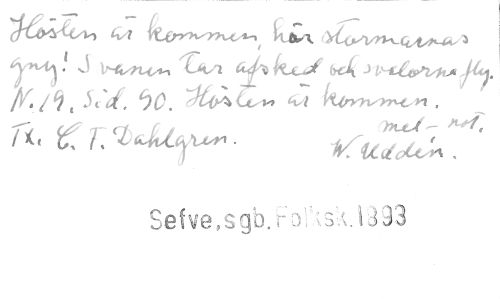 Hösten är kommen, hör stormarnas
gny! Svanen tar afsked och svalorna fly.
N. 19. Sid. 90. Hösten är kommen.
mel- not.
Tx. C. F. Dahlgren.
W. Uddén.
Sefve, sgb. Folksk. 1893